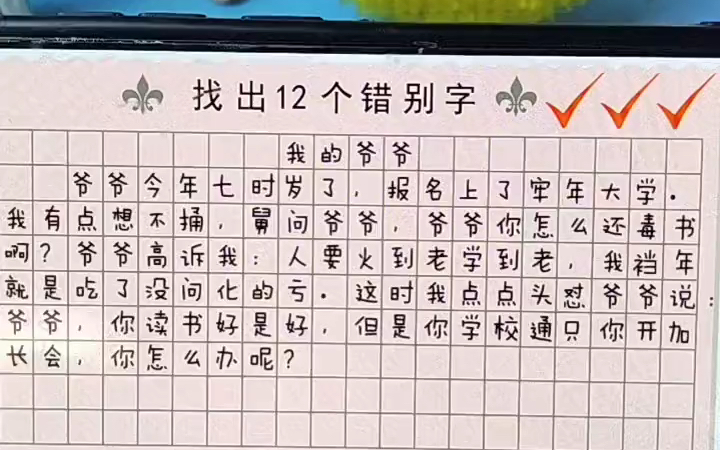 找出12个错别字
我的爷爷
爷爷今年七时岁了,报名上了牢年大学.
我有点想不捅,舅问爷爷,爷爷你怎么还毒书
啊?爷爷高诉我:人要火到老学到老,我裆年
就是吃了没问化的亏.这时我点点头怼爷爷说:
爷爷,你读书好是好,但是你学校通只你开加
长会,你怎么办呢?